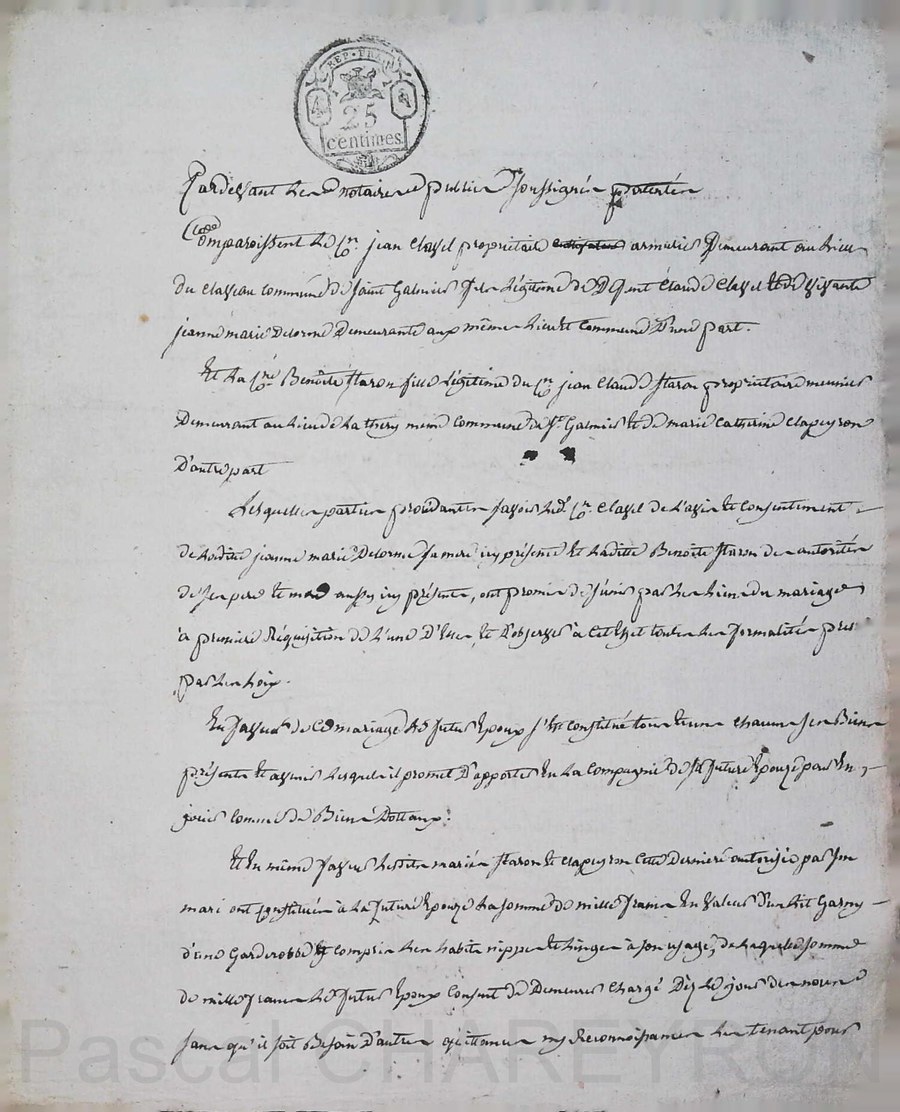 REP. FRA.
25
centimes
Pardevant les notaires publics soussignés
Comparoissent le Cn. jean Clavel proprietaire armurier Demeurant au lieu
du Clapeau commune de saint Galmier fils légitime de Defunt Claude Clavel et de vivante
jeanne marie Delorme Demeurante aux même lieu et commune D'une part.
Et la Cne. Benoite staron fille légitime du Cn. jean Claude staron propriétaire meunier
Demeurant au lieu de la thery meme commune de St. Galmier et de marie Catherine Clapeyron
D'autre part
Lesquelles parties procédantes savoir led. Cn. Clavel de l'avis et consentement
de ladite jeanne marie Delorme sa mere icy présente et laditte Benoite staron de autorités
de ses pere et mere aussy icy présents, ont promis de s'unir par les liens du mariage
à premiere Réquisition de L'une D'elles et D'observer à Cet effet toutes les formalités pres
par les loix.
En faveur de Ce mariage Le futur Epoux s'est constitué tous et uns chacuns ses Biens
présents et avenir lesquels il promet D'apporter En la Compagnie de sa future Epouze pour En
jouir comme de Biens Dottaux.
Et En même faveur lesdits mariés staron et Clapeyron cette Derniere autorisée par son
mari ont constitués à la future Epouze la somme de mille francs En valeur d'un lit Garny
d'une Garderobbe et compris les habits nippes et linges à son usage, de laquelle somme
de mille francs le futur Epoux Consent de Demeurer Chargé Dèz le jour des noces
sans qu'il soit Besoin D'autres quittances ny Reconnoissances les tenant pour
Pascal CHAREYRON